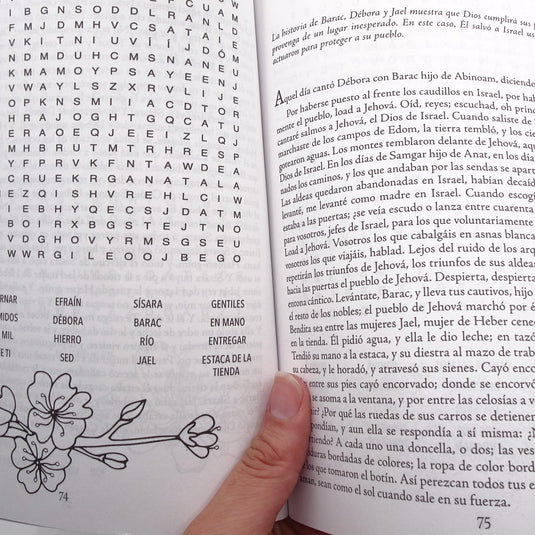 I B G N S O D D L R A N L D
J R A M J V H C S A T A I E
V K I T N I U V Í Í J D Ó M
N D M D U H C M S N A N E U
K M A M O Y P S A Y E E N J
V W A Y L S Z X R V L I J E
O P K N S M I I A C D T O R
H R A J O G H T G Q C A T U
E R A O E Q J E E I Z L Q J
M H B R U T M T R H R E S P
Y F F R V K F N T A W D E A
C R U E K R G A N A T A L A
I E Z Q I S H V R E H L C I W
I E B H Y Q E C S J D A T M
B O I R X B G S T E J T N O
V D G H O V Y R M S G S E U
W W R G I L E O O J B E G O
RNAR EFRAÍN SÍSARA GENTILES
MIDOS DÉBORA BARAC EN MANO
MIL HIERRO RÍO ENTREGAR
E TI SED JAEL ESTACA DE LA
TIENDA
74
La historia de Barac, Débora y Jael muestra que Dios cumplirá sus
provenga de un lugar inesperado. En este caso, Él salvó a Israel us
actuaron para proteger a su pueblo.
Aquel día cantó Débora con Barac hijo de Abinoam, diciende
Por haberse puesto al frente los caudillos en Israel, por hab
mente el pueblo, load a Jehová. Oíd, reyes; escuchad, oh prin
cantaré salmos a Jehová, el Dios de Israel. Cuando saliste de
marchaste de los campos de Edom, la tierra tembló, y los cie
gotearon aguas. Los montes temblaron delante de Jehová, aqu
Dios de Israel. En los días de Samgar hijo de Anat, en los dí
nados los caminos, y los que andaban por las sendas se apart
Las aldeas quedaron abandonadas en Israel, habían decaíd
levanté, me levanté como madre en Israel. Cuando escogí
estaba a las puertas; ¿se veía escudo o lanza entre cuarenta
para vosotros, jefes de Israel, para los que voluntariamente
Load a Jehová. Vosotros los que cabalgáis en asnas blanca
vosotros los que viajáis, hablad. Lejos del ruido de los arq
repetirán los triunfos de Jehová, los triunfos de sus aldea
hacia las puertas el pueblo de Jehová. Despierta, despierta
entona cántico. Levántate, Barac, y lleva tus cautivos, hijo
el resto de los nobles; el pueblo de Jehová marchó por é
Bendita sea entre las mujeres Jael, mujer de Heber cene
en la tienda. Él pidió agua, y ella le dio leche; en tazó
Tendió su mano a la estaca, y su diestra al mazo de trab
su cabeza, y le horadó, y atravesó sus sienes. Cayó enco
entre sus pies cayó encorvado; donde se encorvó
se asoma a la ventana, y por entre las celosías a v
ir? ¿Por qué las ruedas de sus carros se detiene
pondían, y aun ella se respondía a sí misma: ¿N
rtiendo? A cada uno una doncella, o dos; las ves
duras bordadas de colores; la ropa de color bord
los que tomaron el botín. Así perezcan todos tus e
aman, sean como el sol cuando sale en su fuerza.
75